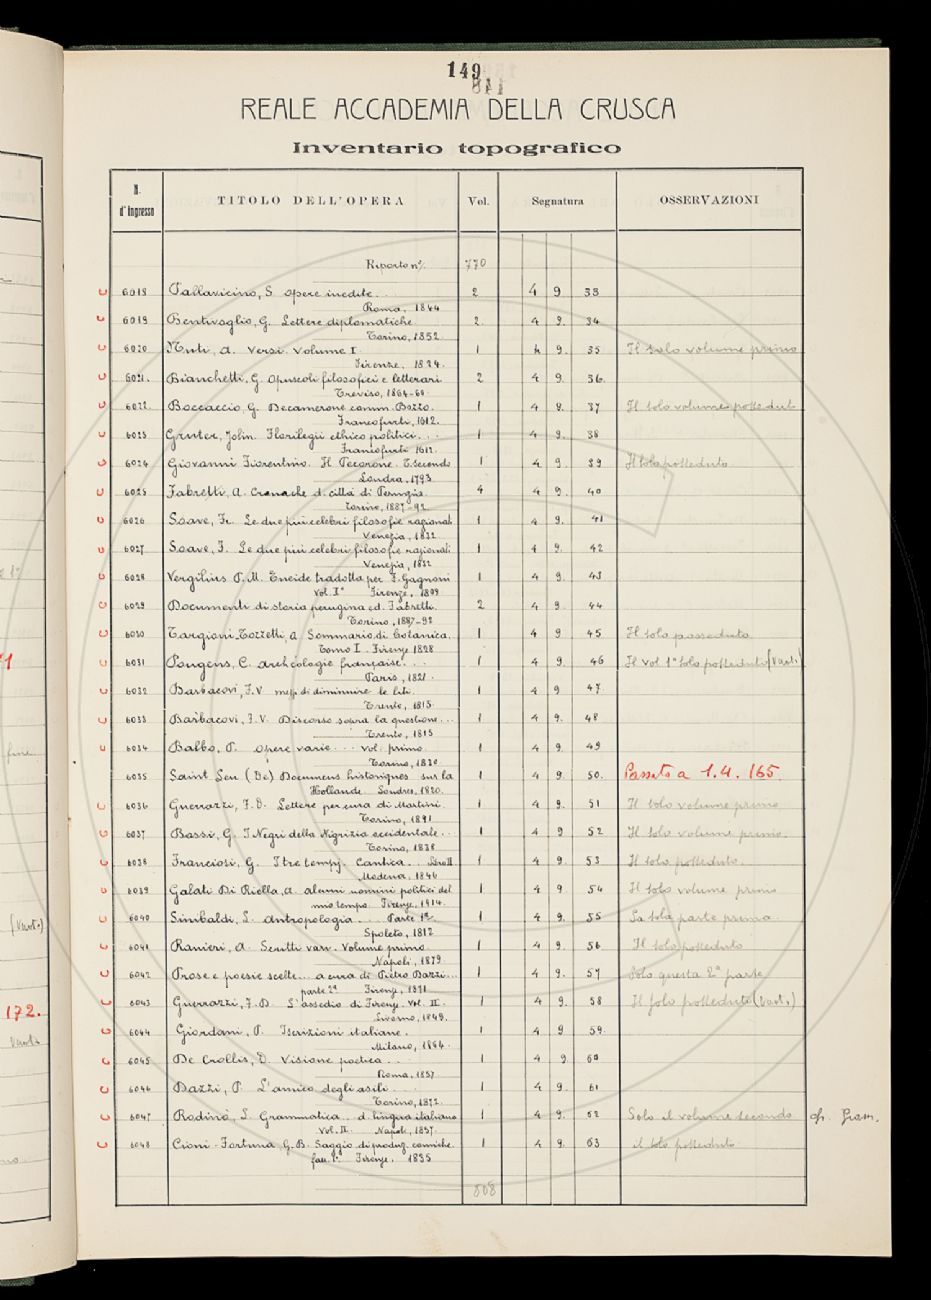 149
148
REALE ACCADEMIA DELLA CRUSCA
Inventario topografico
N. d'Ingresso TITOLO DELL'OPERA Vol. Segnatura OSSERVAZIONI
Riporto n°. 770
6018 Pallavicino, S. Opere inedite... 2 4 9 33
Roma, 1844
6019 Bentivoglio, G. Lettere diplomatiche 2. 4 9. 34
Torino, 1852
6020 Nuti, A. Versi. Volume I 1 4 9. 35 Il solo volume primo
Firenze, 1824.
6021. Bianchetti, G. Opuscoli filosofici e letterari 2 4 9. 36.
Treviso, 1864-
6022. Boccaccio, G. Decamerone comm. Bozzo. 1 4 9. 37 Il solo volume posseduto
Francofurti, 1612.
6023 Gruter, John. Florilegii ethico politici... 1 4 9. 38
Francofurti 1612.
6024 Giovanni Fiorentino. Il Pecorone. T. secondo 1 4 9. 39 Il solo posseduto
Londra, 1793
6025 Fabretti, A. Cronache d. città di Perugia. 4 4 9. 40
Torino, 1887-92
6026 Soave, Fr. Le due più celebri filosofie razionali 1 4 9. 41
Venezia, 1832
6027 Soave, F. Le due più celebri filosofie razionali 1 4 9. 42
Venezia, 1832
6028 Vergilius P. M. Eneide tradotta per F. Gagnoni 1 4 9. 43
Vol. I° Firenze, 1809
6029 Documenti di storia perugina ed. Fabretti. 2 4 9. 44
Torino, 1887-92
6030 Targioni-Tozzetti, A. Sommario di botanica. 1 4 9 45 Il solo posseduto
Tomo I. Firenze 1828
6031 Pougens, C. Archéologie française... 1 4 9 46 Il vol 1° solo posseduto (Vast.)
Paris, 1821.
6032 Barbacovi, F. V. mezzi di diminuire le liti. 1 4 9 47.
Trento, 1815.
6033 Barbacovi, F. V. Discorso sopra la questione... 1 4 9. 48
Trento, 1815
6034 Balbo, P. Opere varie... Vol. primo. 1 4 9. 49
Torino, 1830
6035 Saint Leu (De) Documens historiques sur la 1 4 9. 50. Passato a 1.4.165
Hollande. Londres, 1820.
6036 Guerrazzi, F. D. Lettere per cura di Martini. 1 4 9. 51 Il solo volume primo
Torino, 1891
6037 Bassi, G. I Negri della Nigrizia occidentale.. 1 4 9 52 Il solo volume primo.
Torino, 1838
6038 Franciosi, G. I tre tempj. Cantica.. 1 4 9. 53 Il solo posseduto.
Modena, 1846
6039 Galati Di Riella, A. Alcuni uomini politici del 1 4 9. 54 Il solo volume primo
mio tempo. Firenze, 1914.
6040 Sinibaldi, S. Antropologia... Parte 1ª. 1 4 9. 55 La sola parte prima.
Spoleto, 1812
6041 Ranieri, A. Scritti vari. Volume primo. 1 4 9. 56 Il solo posseduto
Napoli, 1879.
6042 Prose e poesie scelte... a cura di Pietro Dazzi... 1 4 9. 57 Solo questa 2ª parte
parte 2ª Firenze, 1871
6043 Guerrazzi, F. D. L'assedio di Firenze. Vol. II. 1 4 9. 58 Il solo posseduto (Vast.)
Livorno, 1849.
6044 Giordani, P. Iscrizioni italiane. 1 4 9 59.
Milano, 1864.
6045 De Crollis, D. Visione poetica... 1 4 9. 60
Roma, 1857
6046 Dazzi, P. L'amico degli asili... 1 4 9. 61
Torino, 1872.
6047 Rodinò, L. Grammatica.. d. lingua italiana 1 4 9. 62 Solo il volume secondo cfr. Gram.
Vol. II. Napoli, 1857.
6048 Cioni-Fortuna, G. B. Saggio di produz. comiche. 1 4 9. 63 il solo posseduto
fasc. 1°. Firenze, 1835
808